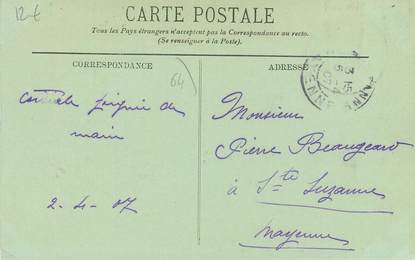 12 €
CARTE POSTALE
Tous les Pays étrangers n'acceptent pas la Correspondance au recto.
(Se renseigner à la Poste).
CORRESPONDANCE
64
ADRESSE
poignée de
main
2-4-07
Monsieur
Pierre Beaugeard
à Ste Suzanne
Mayenne